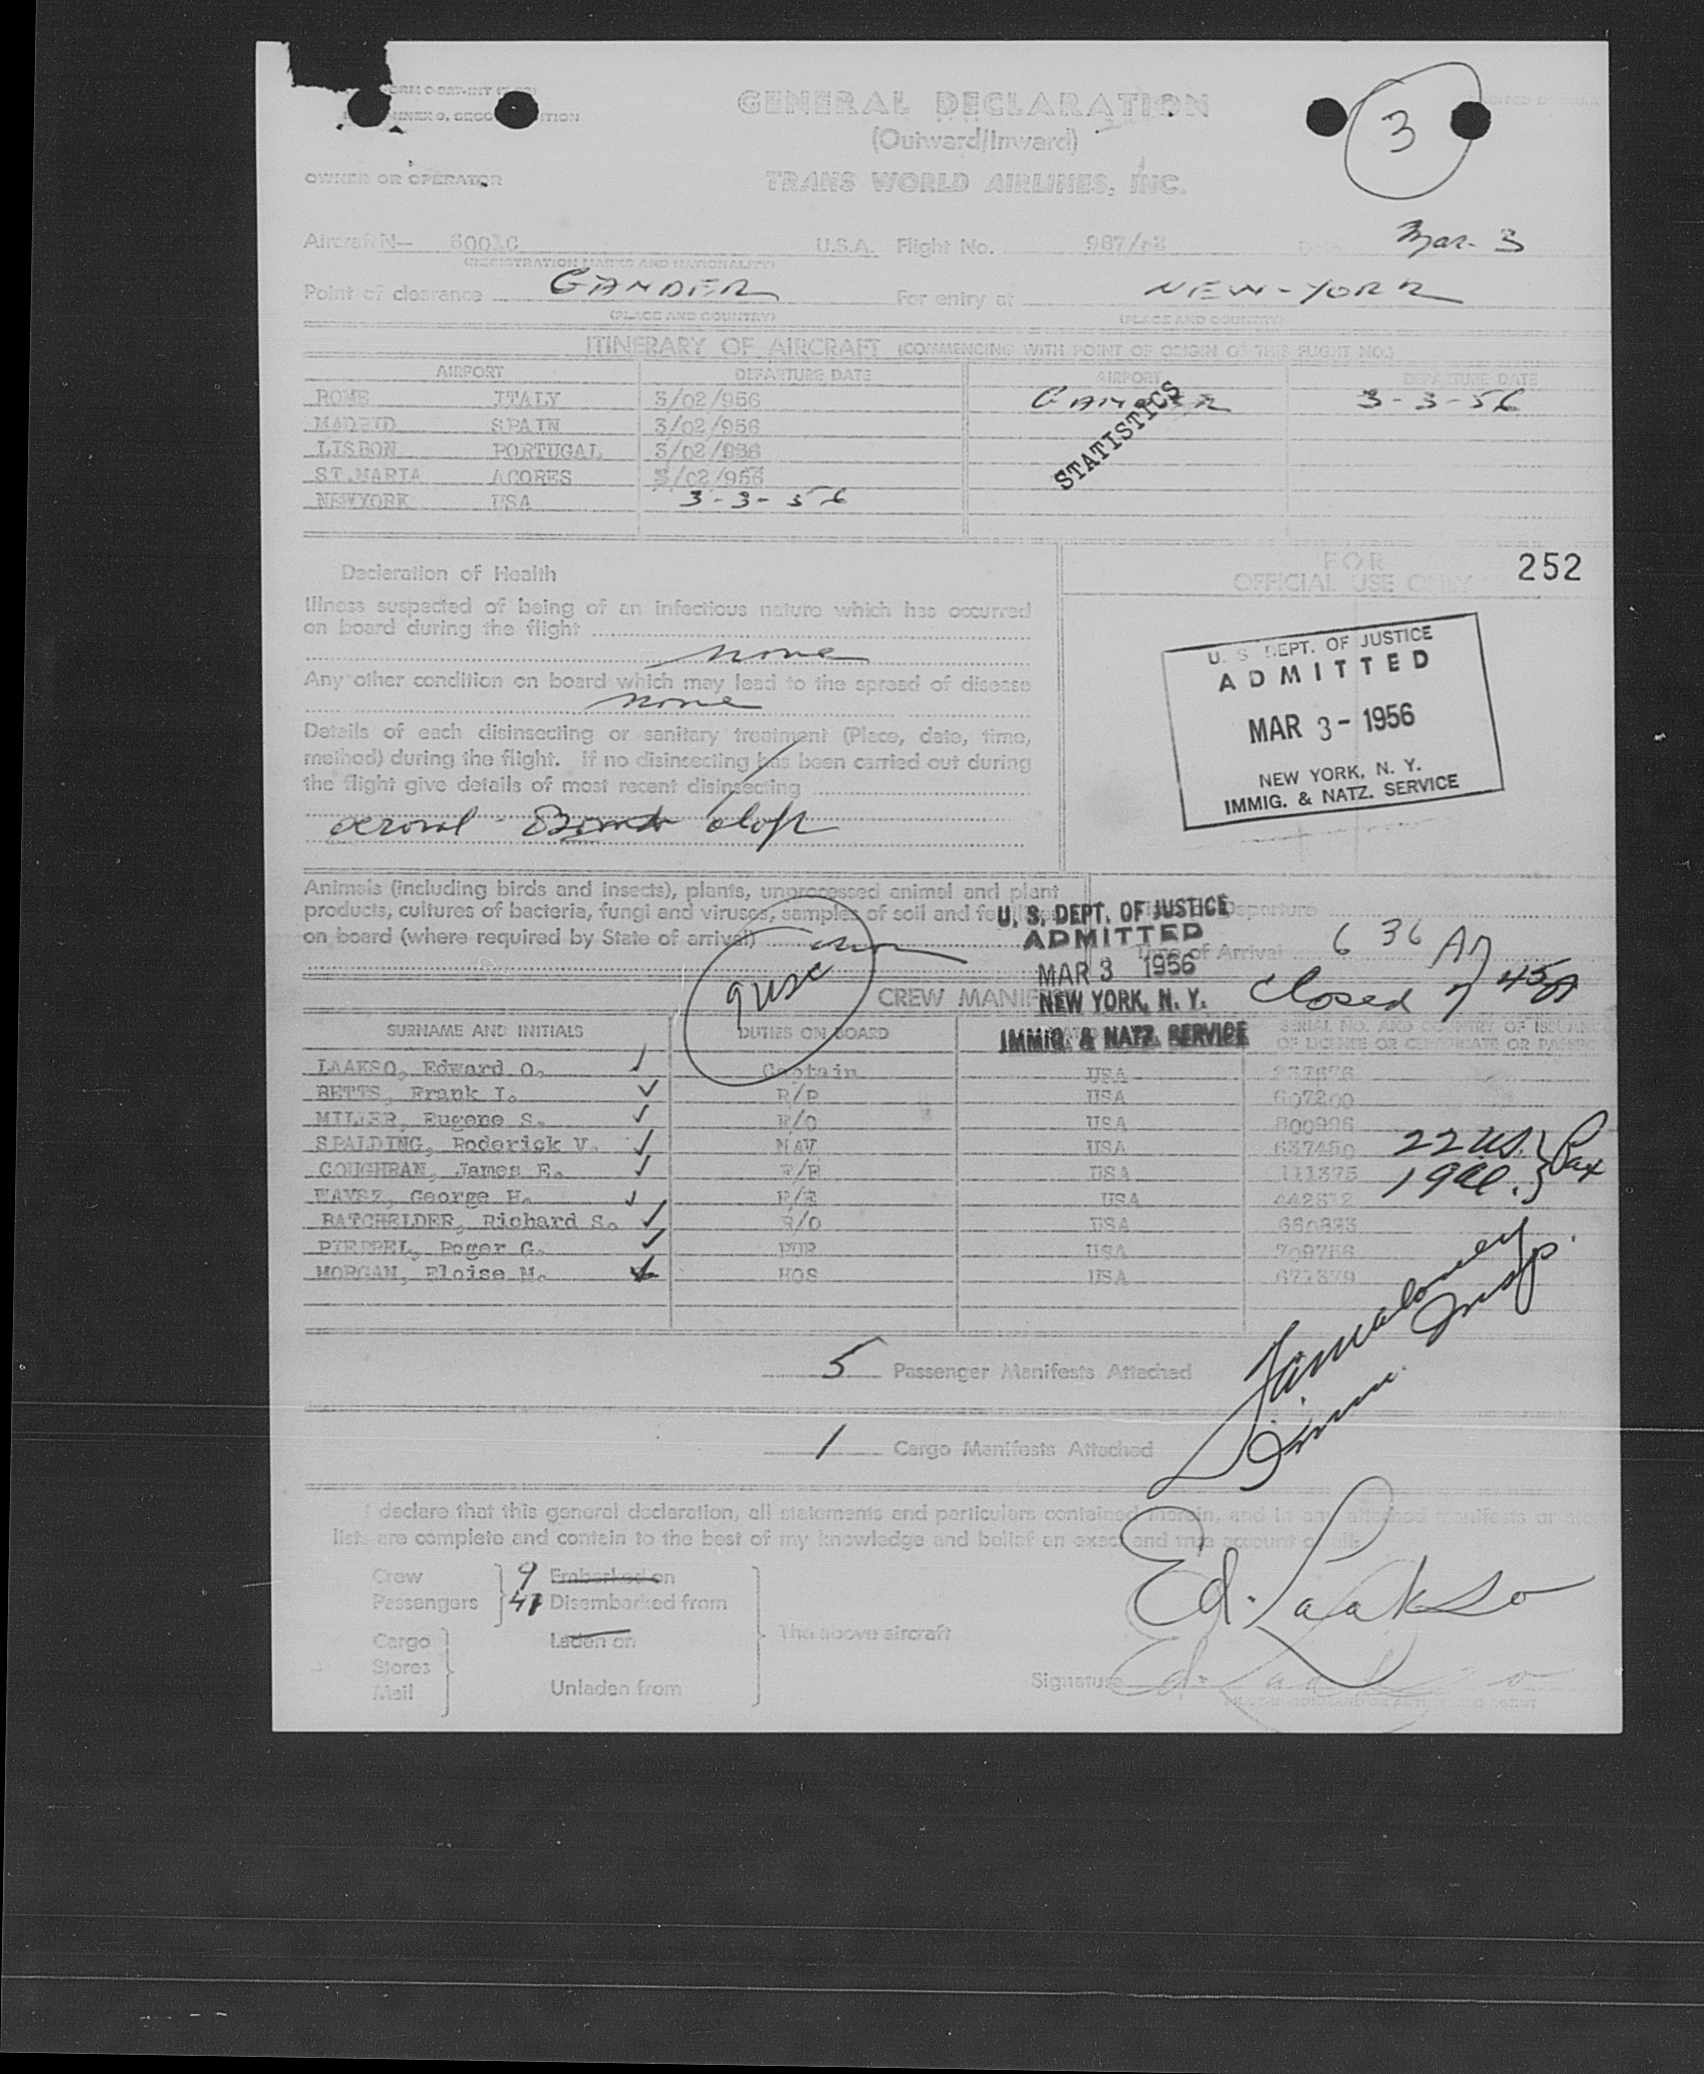 GENERAL DECLARATION
(Outward/Inward)
3
OWNER OR OPERATOR
TRANS WORLD AIRLINES, INC.
Aircraft N— U.S.A. Flight No. Mar. 3
(REGISTRATION MARKS AND NATIONALITY)
Point of clearance GANDER For entry at NEW-YORK
(PLACE AND COUNTRY) (PLACE AND COUNTRY)
ITINERARY OF AIRCRAFT (COMMENCING WITH POINT OF ORIGIN OF THIS FLIGHT NO.)
AIRPORT DEPARTURE DATE AIRPORT DEPARTURE DATE
ROME ITALY 3/02/956 GANDER 3-3-56
MADRID SPAIN 3/02/956
LISBON PORTUGAL 3/02/956
ST.MARIA ACORES 3/02/956
NEWYORK USA 3-3-56
STATISTICS
Declaration of Health
FOR
OFFICIAL USE ONLY
252
Illness suspected of being of an infectious nature which has occurred
on board during the flight
none
Any other condition on board which may lead to the spread of disease
none
Details of each disinsecting or sanitary treatment (Place, date, time,
method) during the flight. If no disinsecting has been carried out during
the flight give details of most recent disinsecting
aerosol - Bomb aloft
U. S. DEPT. OF JUSTICE
ADMITTED
MAR 3 - 1956
NEW YORK, N. Y.
IMMIG. & NATZ. SERVICE
Animals (including birds and insects), plants, unprocessed animal and plant
products, cultures of bacteria, fungi and viruses, samples of soil and
on board (where required by State of arrival)
Departure
Time of Arrival 6 36 A
Closed 7 45A
U. S. DEPT. OF JUSTICE
ADMITTED
MAR 3 1956
NEW YORK, N. Y.
IMMIG. & NATZ. SERVICE
9 usc
CREW MANIFEST
SURNAME AND INITIALS DUTIES ON BOARD SERIAL NO. AND COUNTRY OF
OF LICENSE OR CERTIFICATE OR
LAAKSO, Edward O. Captain USA
BETTS, Frank I. USA 607200
MILLER, Eugene S. F/O USA
SPALDING, Roderick V. NAV USA 637450
COUGHRAN, James E. F/E USA 111375
George H. F/E USA
BATCHELDER, Richard S. USA
Roger G. PUR USA
MORGAN, Eloise M. HOS USA
22 US. } Pax
19 al. }
Immi. Insp.
5 Passenger Manifests Attached
1 Cargo Manifests Attached
I declare that this general declaration, all statements and particulars contained therein, and in any attached manifests or
lists are complete and contain to the best of my knowledge and belief an exact and true account of all
Crew 9 Embarked on
Passengers 41 Disembarked from
Cargo Laden on
Stores
Mail Unladen from
The above aircraft
Ed. Laakso
Signature Ed. Laakso